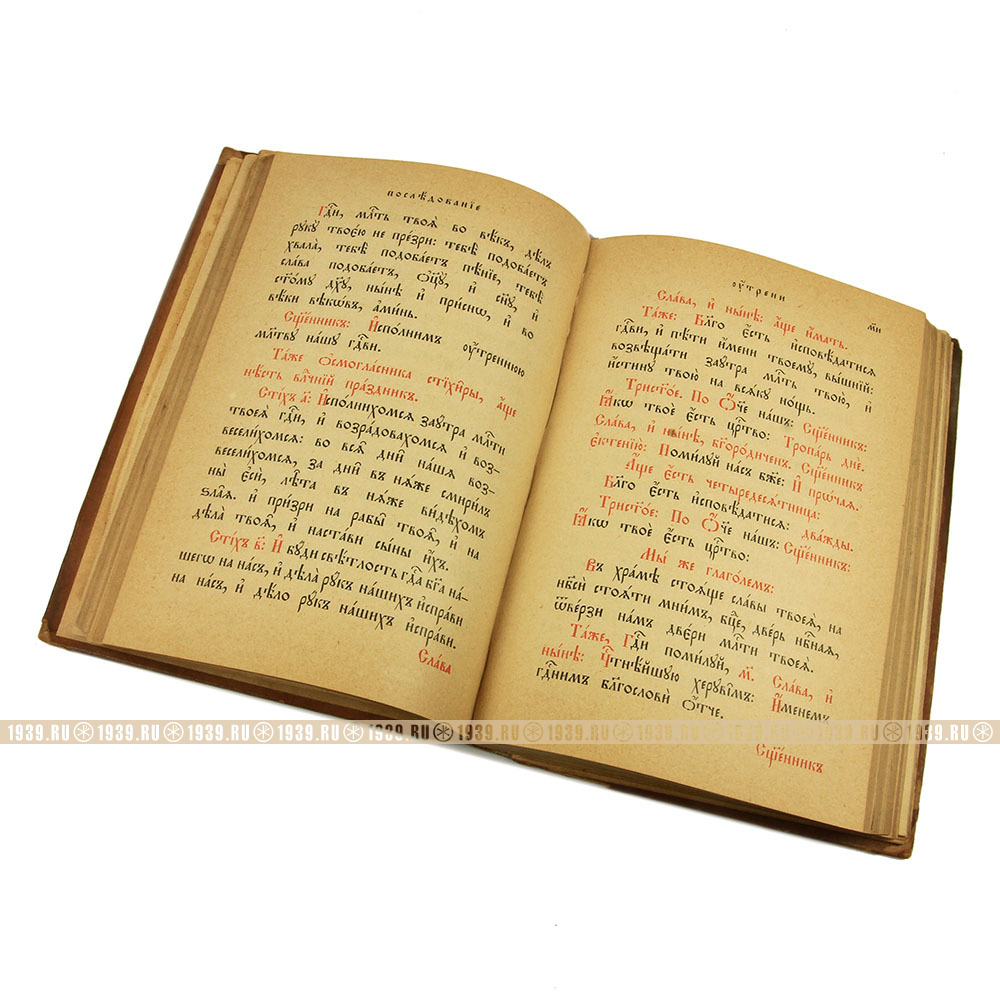 послѣ́дованїе
Гдⷭ҇и, млⷭ҇ть твоѧ̀ во вѣ́къ, дѣ́лъ
рꙋкꙋ̀ твоє́ю не пре́зри: тебѣ̀ подоба́етъ
хвала̀, тебѣ̀ подоба́етъ пѣ́нїе, тебѣ̀
сла́ва подоба́етъ, ѻ҆ц҃ꙋ̀, и҆ сн҃ꙋ, и҆
ст҃о́мꙋ дх҃ꙋ, ны́нѣ и҆ при́снѡ, и҆ во
вѣ́ки вѣкѡ́въ, а҆ми́нь.
Сщ҃е́нникъ: И҆спо́лнимъ ᲂу҆́треннюю
мл҃твꙋ на́шꙋ гдⷭ҇ви.
Та́же ѻ҆смогла́сника стїхи̑ры, а҆́ще
нѣ́сть влⷣчнїй пра́здникъ.
Сті́хъ а҃: И҆спо́лнихомсѧ заꙋ́тра млⷭ҇ти
твоеѧ̀ гдⷭ҇и, и҆ возра́довахомсѧ и҆ воз-
весели́хомсѧ: во всѧ̑ дни̑ на́шѧ воз-
весели́хомсѧ, за дни̑ въ нѧ́же смири́лъ
ны̀ є҆сѝ, лѣ̑та въ нѧ́же ви́дѣхомъ
ѕла̑ѧ. и҆ при́зри на рабы̑ твоѧ̑, и҆ на
дѣла̀ твоѧ̑, и҆ наста́ви сы́ны и҆́хъ.
Сті́хъ в҃: И҆ бꙋ́ди свѣ́тлость гдⷭ҇а бг҃а на́-
шегѡ на на́съ, и҆ дѣла̀ рꙋ́къ на́шихъ и҆спра́ви
на на́съ, и҆ дѣ́ло рꙋ́къ на́шихъ и҆спра́ви.
Сла́ва
ᲂу҆́трени
ми
Сла́ва, и҆ ны́нѣ: а҆́ще и҆́мать.
Та́же: Бл҃го є҆́сть и҆сповѣ́датисѧ
гдⷭ҇ви, и҆ пѣ́ти и҆́мени твоемꙋ̀, вы́шнїй:
возвѣща́ти заꙋ́тра млⷭ҇ть твою̀, и҆
и҆́стинꙋ твою̀ на всѧ́кꙋ но́щь.
Трист҃о́е. По Ѻ҆́ч҃е на́шъ: Сщ҃е́нникъ:
Ꙗ҆́кѡ твоѐ є҆́сть црⷭ҇тво: Тропа́рь днѐ.
Сла́ва, и҆ ны́нѣ, бг҃оро́диченъ. Сщ҃е́нникъ
є҆ктенїю̀: Поми́лꙋй на́съ бж҃е: И҆ прѡ́чаѧ.
А҆́ще є҆́сть четыредесѧ́тница:
Бл҃го є҆́сть и҆сповѣ́датисѧ: два́жды.
Трист҃о́е: По Ѻ҆́ч҃е на́шъ: Сщ҃е́нникъ:
Ꙗ҆́кѡ твоѐ є҆́сть црⷭ҇тво:
Мы́ же глаго́лемъ:
Въ хра́мѣ стоѧ́ще сла́вы твоеѧ̀, на
нб҃сѝ стоѧ́ти мни́мъ, бцⷣе, две́рь нбⷭ҇наѧ,
ѿве́рзи на́мъ две́ри млⷭ҇ти твоеѧ̀.
Та́же, Гдⷭ҇и поми́лꙋй, м҃. Сла́ва, и҆
ны́нѣ: Чⷭ҇тнѣ́йшꙋю херꙋві̑мъ: И҆́менемъ
гдⷭ҇нимъ бл҃гословѝ ѻ҆́тче.
Сщ҃е́нникъ
1939.RU 1939.RU 1939.RU 1939.RU 1939.RU 1939.RU 1939.RU 1939.RU 1939.RU 1939.RU 1939.RU